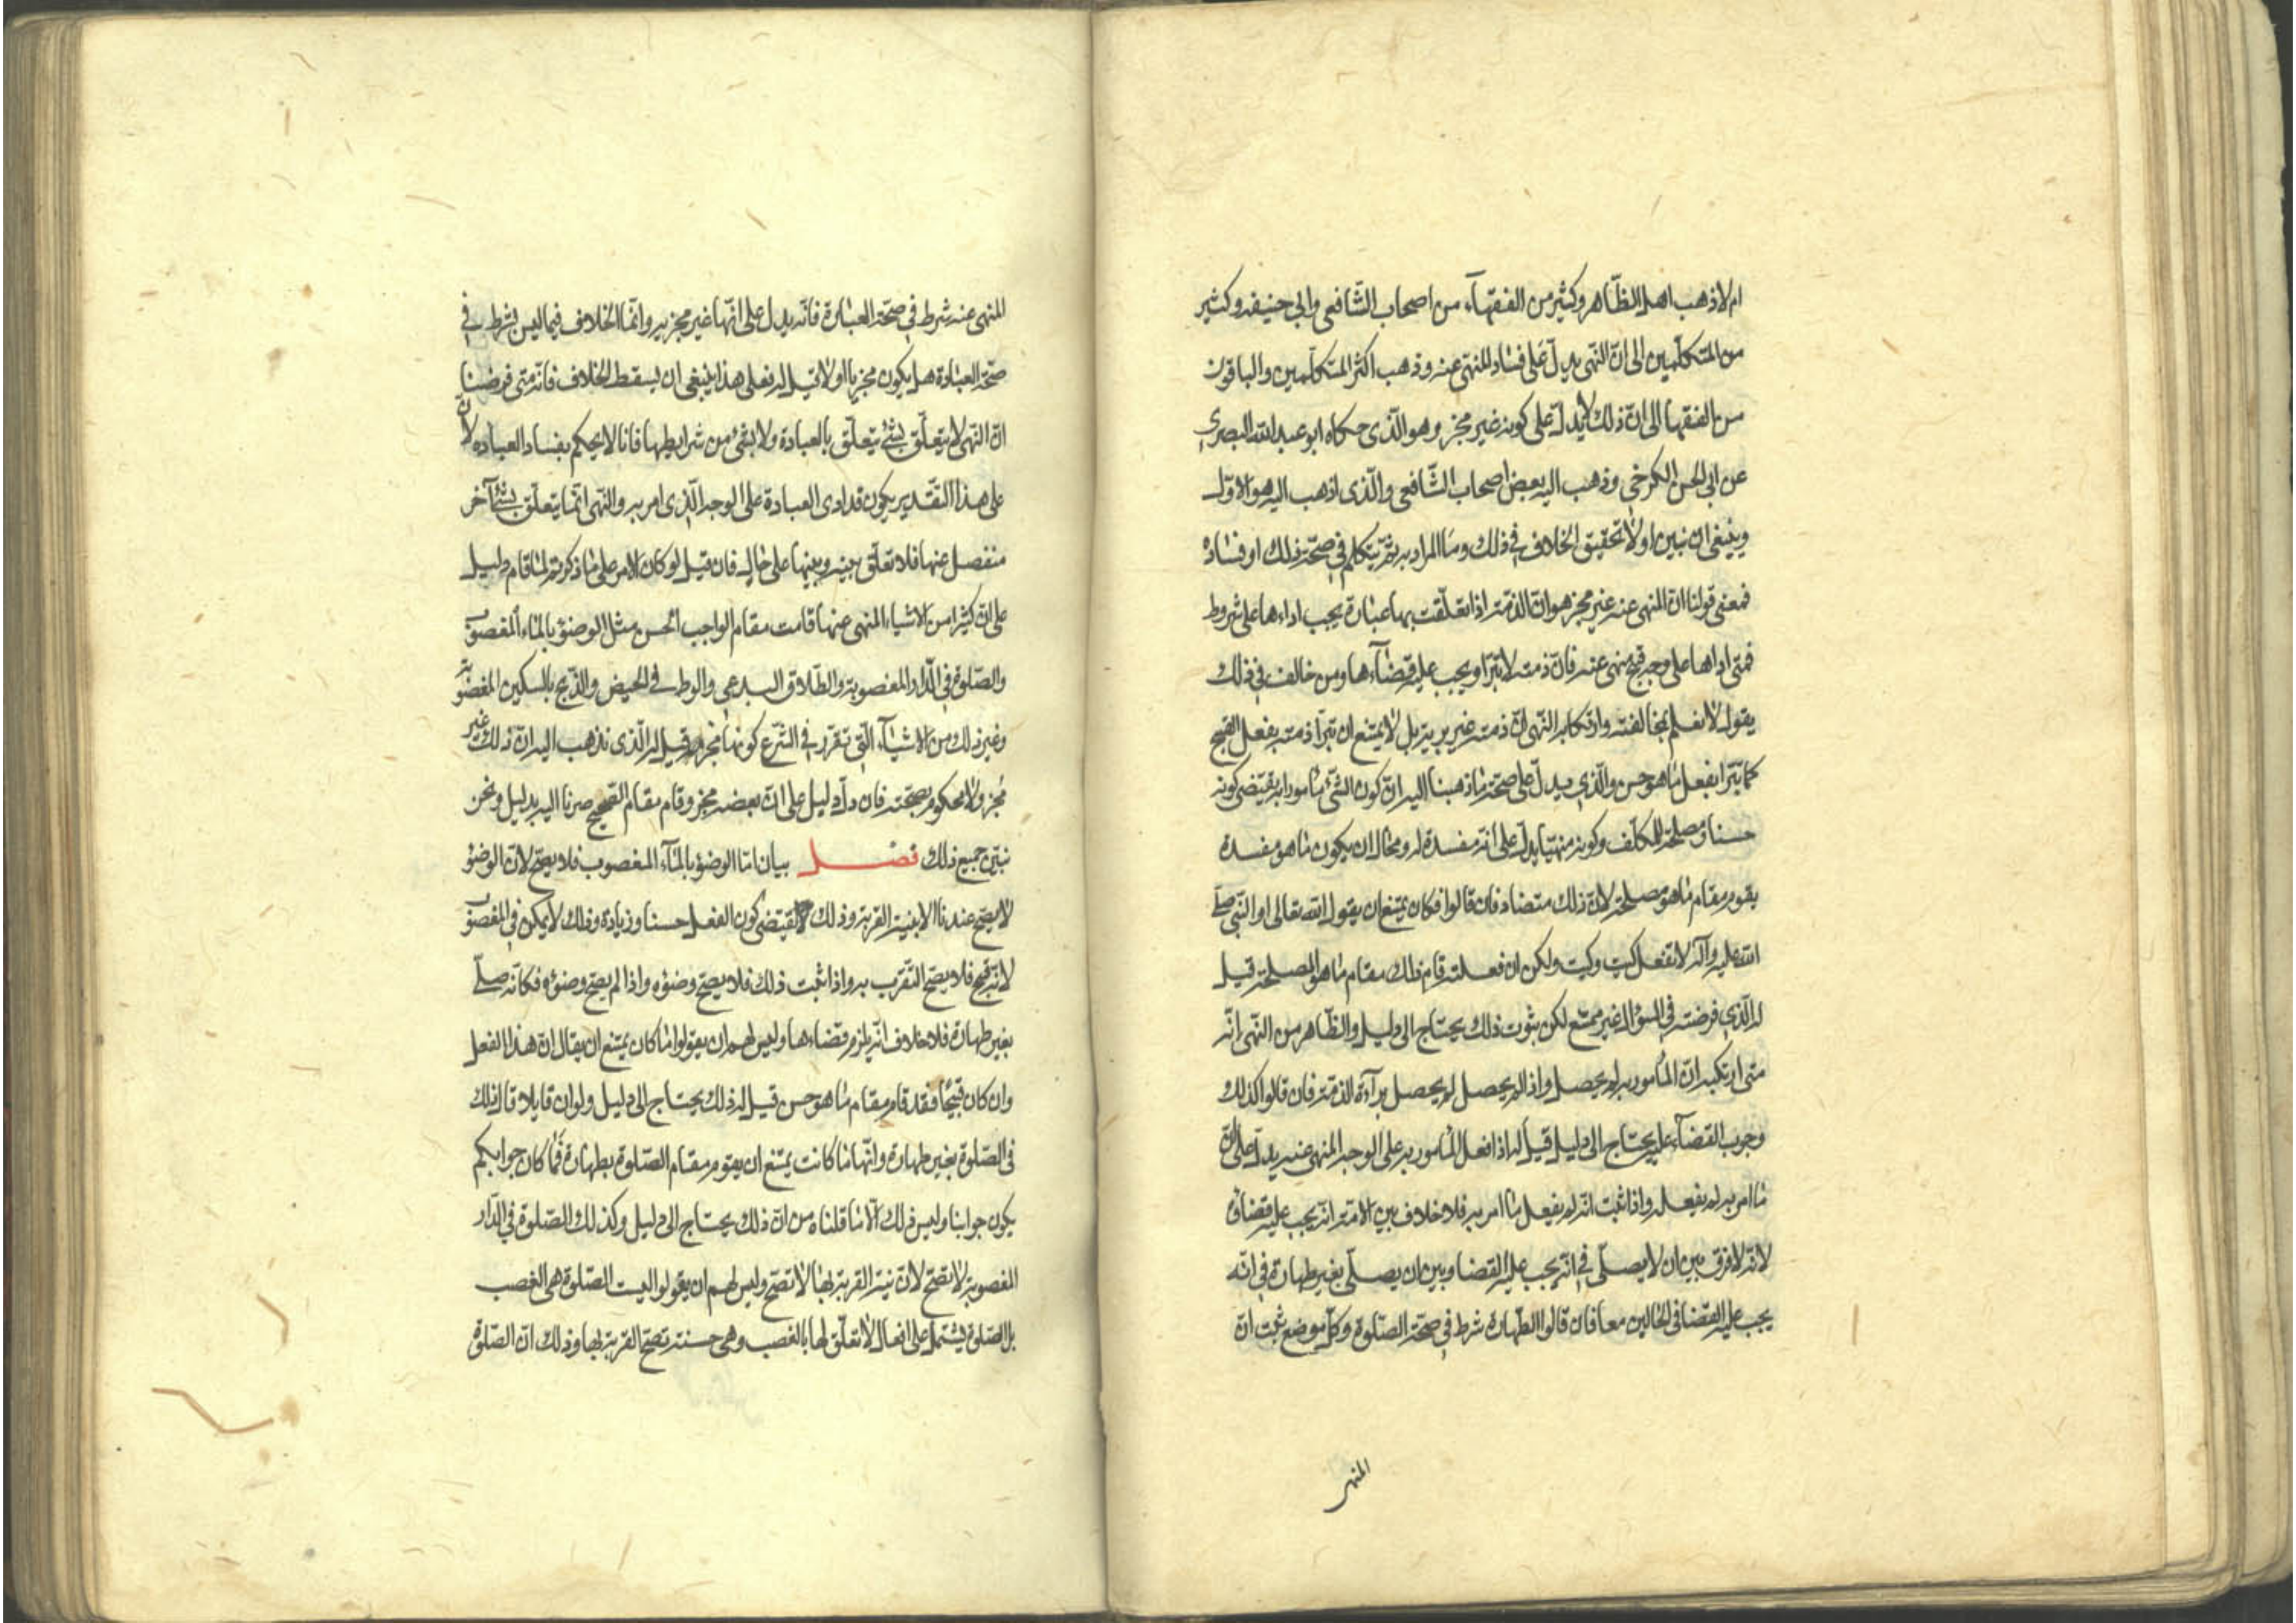 ام لا ذهب اهل الظّاهر وكثير من الفقهآء من اصحاب الشّافعي وابي حنيفه وكثير
من المتكلّمين الى انّ النّهى يدلّ على فساد المنهى عنه وذهب اكثر المتكلّمين والباقون
من الفقها الى انّ ذلك لا يدلّ على كونه غير مجز وهو الّذى حكاه ابو عبد الله البصرى
عن ابى الحسن الكرخى وذهب اليه بعض اصحاب الشّافعى والّذى اذهب اليه هو الاوّل
وينبغى ان نبين اولا تحقيق الخلاف فى ذلك وما المراد به ثمّ يتكلم فى صحّة ذلك او فساده
فمعنى قولنا انّ المنهى عنه غير مجز هو انّ الذمّة اذا تعلّقت بها عبادة يجب اداءها على شروط
فمتى اداها على وجه قبيح منهى عنه فانّ ذمته لا تبرا ويجب عليه قضآءها ومن خالف فى ذلك
يقول لا نعلم بمخالفته وارتكابه النّهى انّ ذمته غير بريّة بل لا يمتنع ان تبرا ذمته بفعل القبيح
كما تبرا بفعل ما هو حسن والّذي يدلّ على صحّة ما ذهبنا اليه انّ كون الشّئ مامورا به يقتضى كونه
حسنا ومصلحة للمكلّف وكونه منهيّا يدلّ على انّه مفسدة له ومحال ان يكون ما هو مفسدة
يقوم مقام ما هو مصلحة لانّ ذلك متضاد فان قالوا فكان يمتنع ان يقول الله تعالى او النّبى صلّى
الله عليه وآله لا تفعل كيت وكيت ولكن ان فعلته قام ذلك مقام ما هو المصلحة قيل
له الّذي فرضته فى السؤال غير ممتنع لكن ثبوت ذلك يحتاج الى دليل والظّاهر من النّهى انّه
متى ارتكبه انّ المأمور به لم يحصل واذا لم يحصل لم يحصل برآءة الذمّة فان قالوا كذلك
وجوب القضآء عليه يحتاج الى دليل قيل له اذا فعل المأمور به على الوجه المنهى عنه يدلّ على انّ
ما امر به لم يفعله واذا ثبت انّه لم يفعل ما امر به فلا خلاف بين الامّة انّه يجب عليه قضاؤه
لانّه لا فرق بين ان لا يصلّى فى انّه يجب عليه القضا وبين ان يصلّى بغير طهارة فى انّه
يجب عليه القضا فى الحالين معا فان قالوا الطّهارة شرط فى صحّة الصّلوة وكلّ موضع ثبت انّ
المنهى
المنهى عنه شرط فى صحّة العبادة فانّه يدل على انّها غير مجزيه وانّما الخلاف فيما ليس بشرط فى
صحّة العبادة هل يكون مجزيا او لا قيل له فعلى هذا ينبغى ان يسقط الخلاف فانّه متى فرضنا
انّ النّهى لا يتعلّق بشئ يتعلّق بالعبادة ولا بشئ من شرايطها فانا لا يحكم بفساد العباده لانّ
على هذا التّقدير يكون قد ادى العبادة على الوجه الّذى امر به والنّهى انّما يتعلّق بشئ آخر
منفصل عنها فلا تعلّق بينه وبينها على حال فان قيل لو كان الامر على ما ذكرتم لما قام دليل
على انّ كثيرا من الاشياء المنهى عنها قامت مقام الواجب الحسن مثل الوضؤ بالماء المغصوب
والصّلوة فى الدّار المغصوبة والطّلاق البدعى والوطى فى الحيض والذّبح بالسكين المغصوبة
وغير ذلك من الاشيآء الّتى تقرر فى الشّرع كونها مجزية قيل له الّذى نذهب اليه انّ ذلك غير
مجز ولا محكوم بصحّته فان دلّ دليل على انّ بعضه مجز وقام مقام الصّحيح صرنا اليه بدليل ونحن
نبيّن جميع ذلك فصل بيان امّا الوضؤ بالمآء المغصوب فلا يصحّ لانّ الوضؤ
لا يصحّ عندنا الا بنيّة القربة وذلك يقتضى كون الفعل حسنا وزيادة وذلك لا يمكن فى المغصوب
لانّه قبيح فلا يصحّ التّقرب به واذا ثبت ذلك فلا يصحّ وضؤه واذا لم يصحّ وضؤه فكانّه صلّى
بغير طهارة فلا خلاف انّه يلزم قضاءها وليس لهم ان يقولوا ما كان يمتنع ان يقال انّ هذا الفعل
وان كان قبيحًا فقد قام مقام ما هو حسن قيل له ذلك يحتاج الى دليل ولو ان قايلا قال ذلك
فى الصّلوة بغير طهارة وانّها ما كانت يمتنع ان يقوم مقام الصّلوة بطهارة فما كان جوابكم
يكون جوابنا وليس ذلك الّا ما قلناه من انّ ذلك يحتاج الى دليل وكذلك الصّلوة فى الدّار
المغصوبة لا تصحّ لانّ نيّة القربة بها لا تصحّ وليس لهم ان يقولوا ليست الصّلوة هى الغصب
بل الصّلوة يشتمل على افعال لا تعلّق لها بالغصب وهى حسنة تصحّ القربة بها وذلك انّ الصّلوة